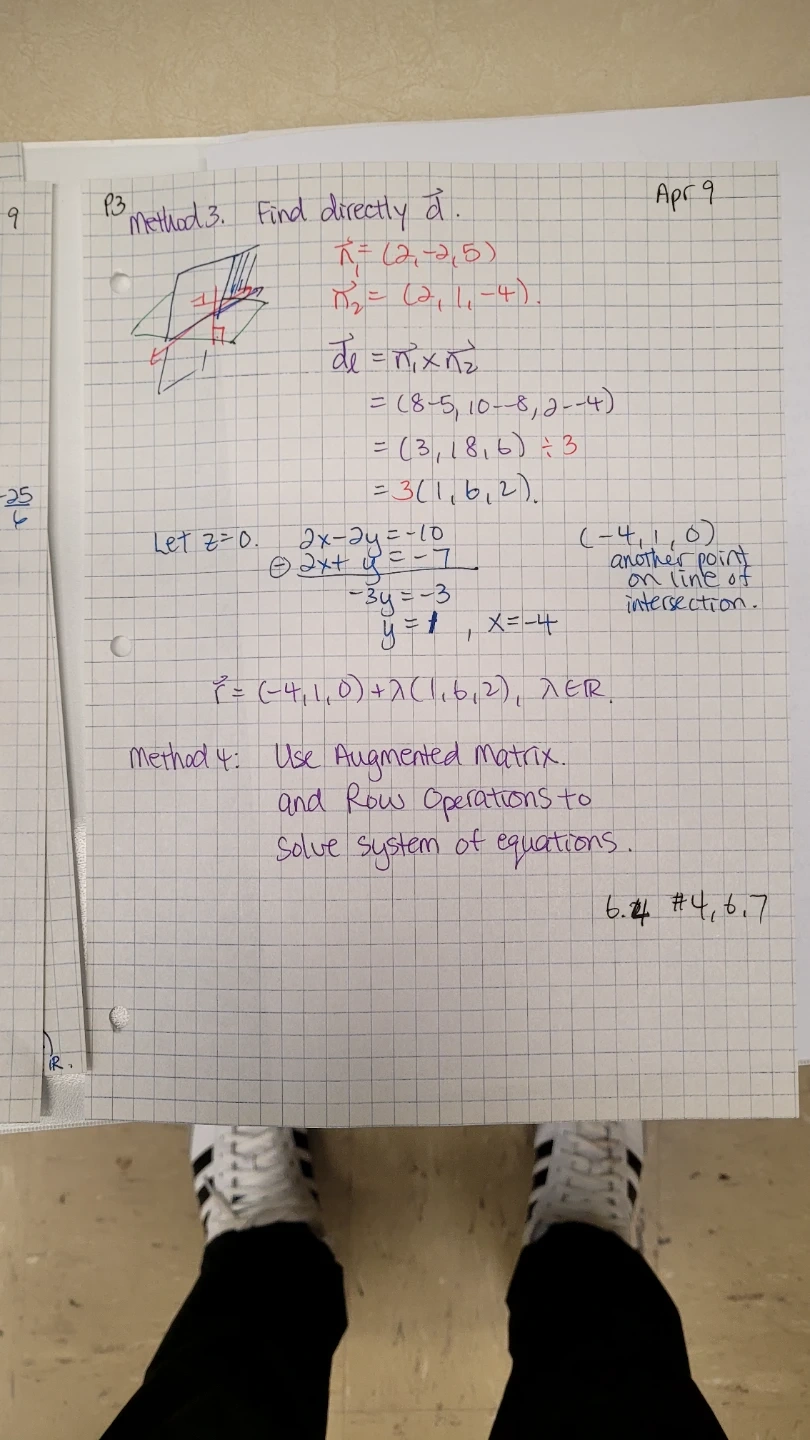 9
-25
6
R.
P3
Apr 9
Method 3. Find directly d⃗.
n⃗₁ = (2,-2,5)
n⃗₂ = (2, 1, -4).
d⃗ℓ = n⃗₁ × n⃗₂
= (8-5, 10--8, 2--4)
= (3, 18, 6) ÷ 3
= 3(1, 6, 2).
Let z=0. 2x-2y=-10
⊖ 2x+ y = -7
-3y = -3
y = 1 , x=-4
(-4, 1, 0)
another point
on line of
intersection.
r⃗ = (-4, 1, 0) + λ(1, 6, 2), λ∈ℝ.
Method 4: Use Augmented Matrix.
and Row Operations to
Solve system of equations.
6.4 #4, 6, 7